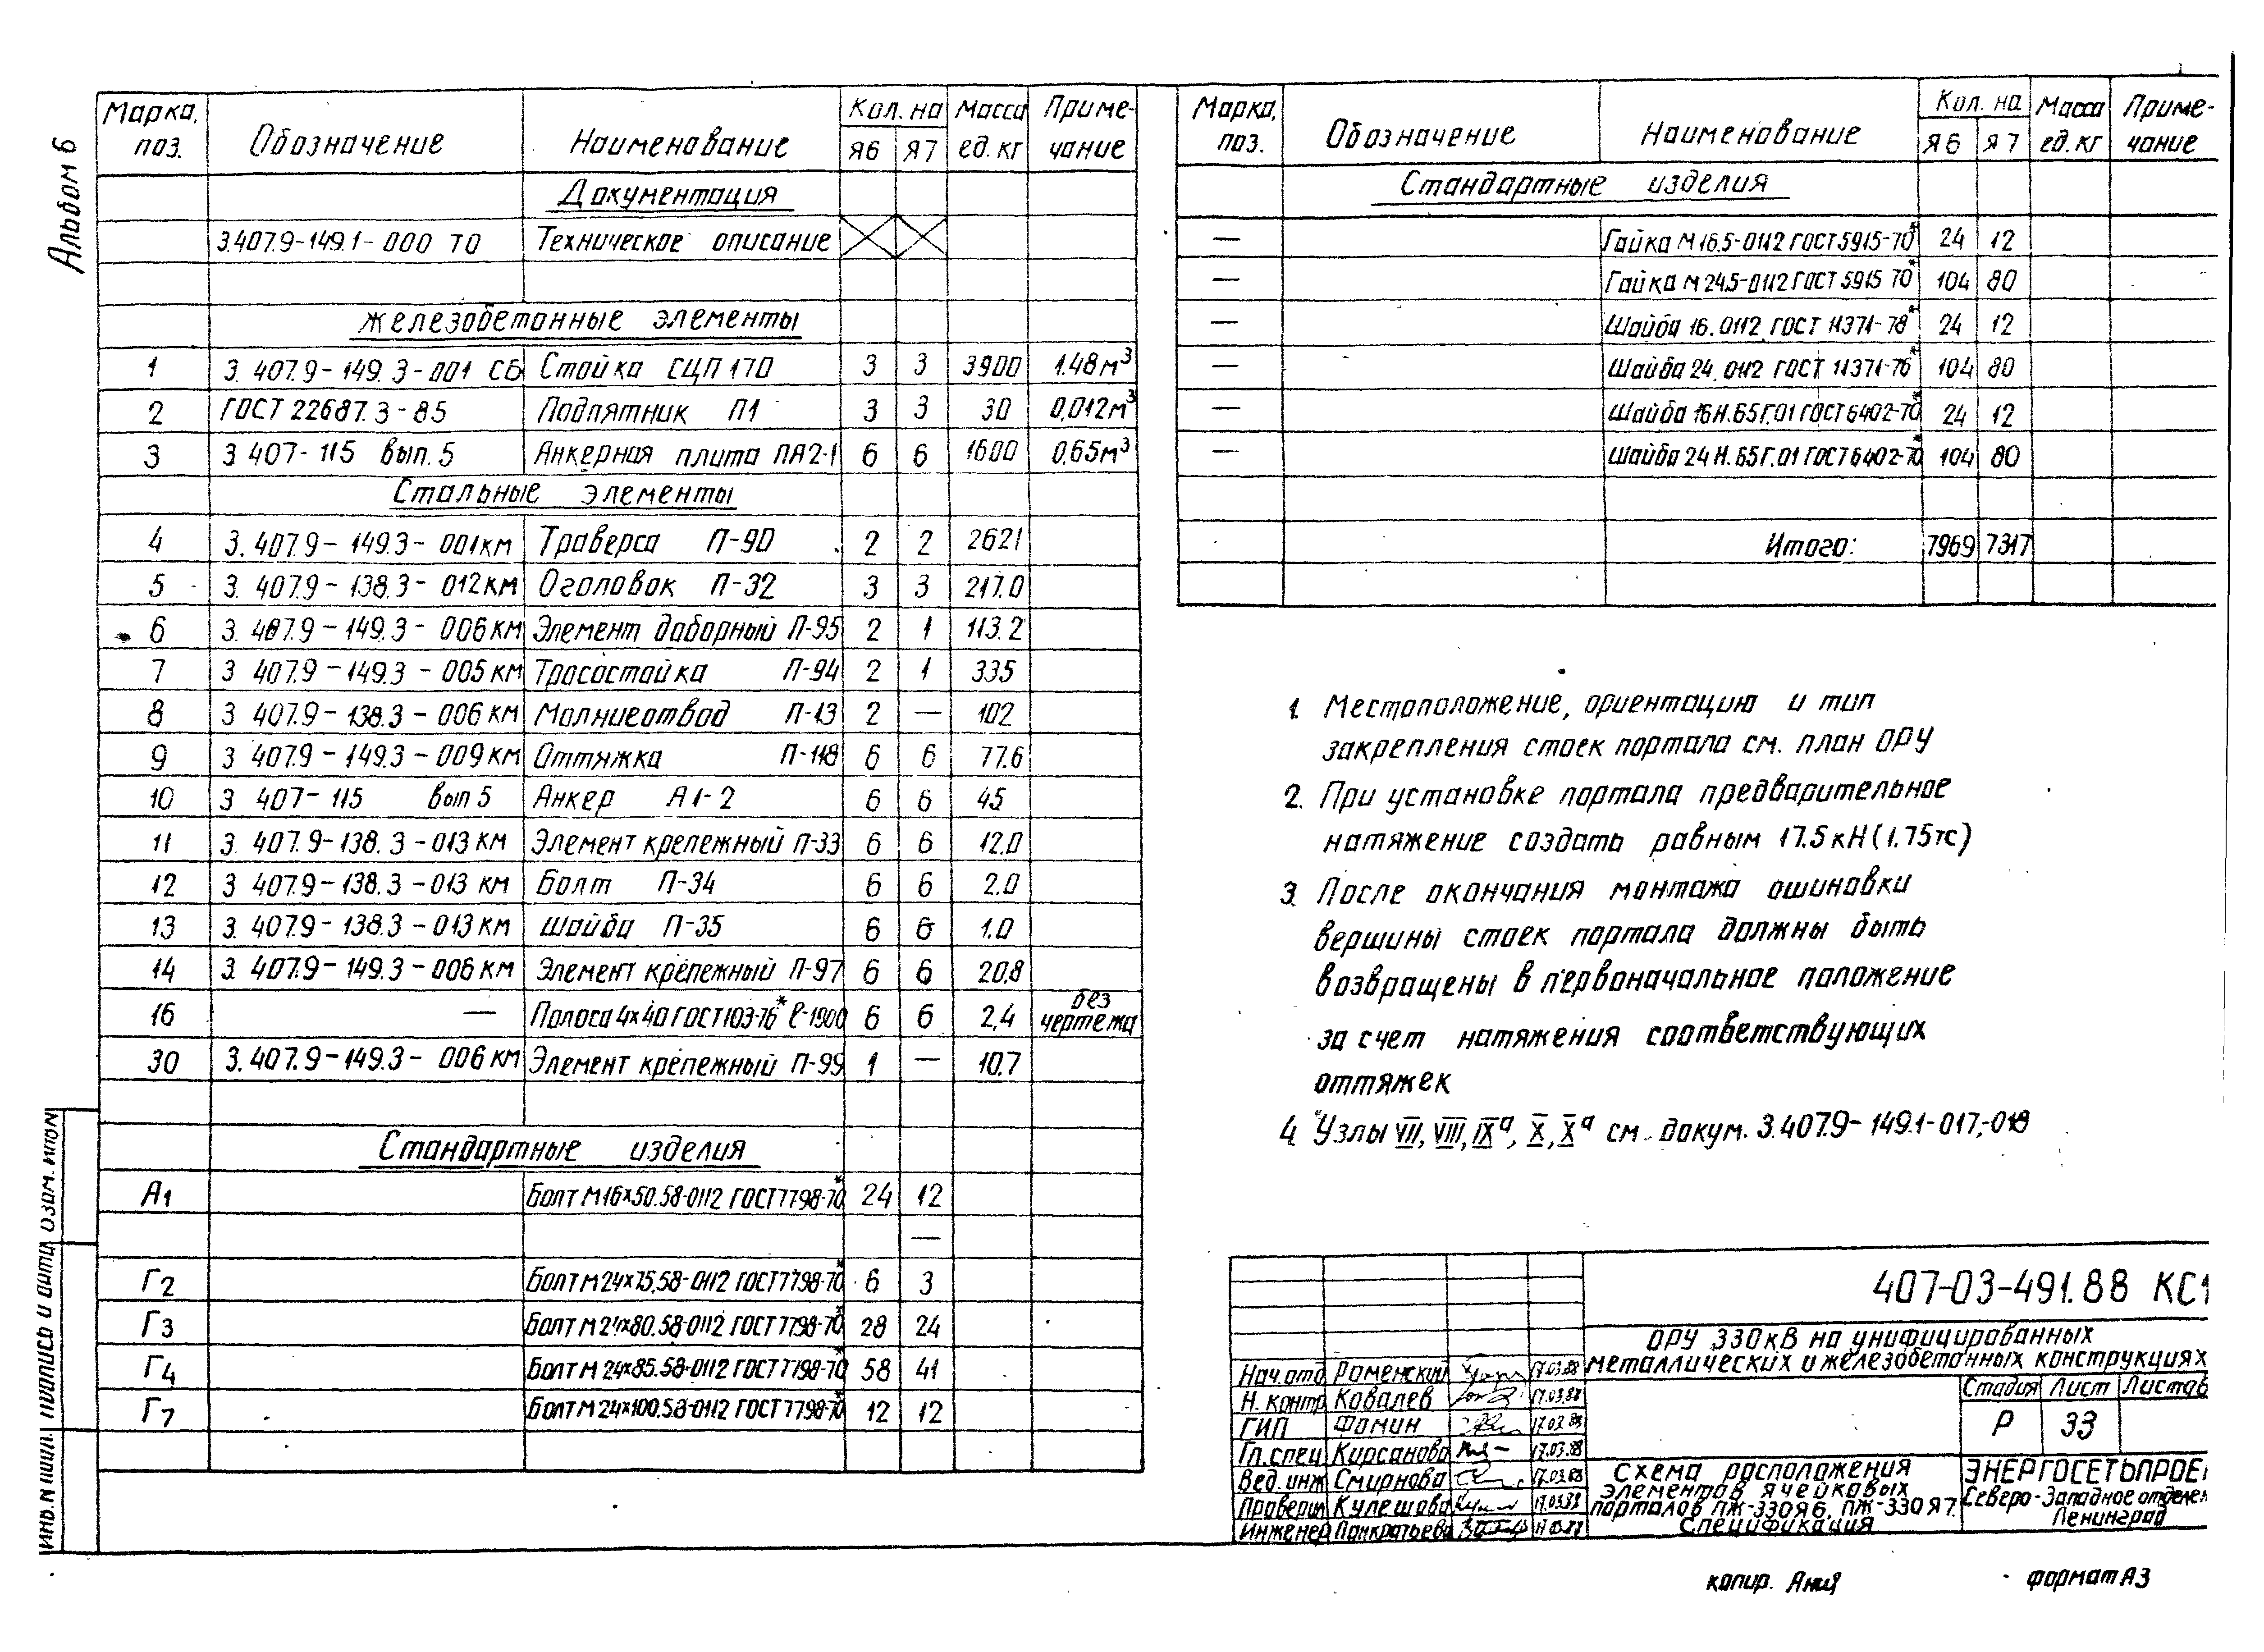 Альбом 6
Марка, поз. Обозначение Наименование Кол. на Я6 Я7 Масса ед. кг Приме-чание
Документация
3.407.9-149.1-000 ТО Техническое описание
Железобетонные элементы
1 3. 407.9-149. 3-001 СБ Стойка СЦП 170 3 3 3900 1.48 м³
2 ГОСТ 22687.3-85 Подпятник П1 3 3 30 0,012 м³
3 3 407-115 вып. 5 Анкерная плита ПА2-1 6 6 1600 0,65 м³
Стальные элементы
4 3. 407.9-149.3-001 км Траверса П-90 2 2 2621
5 3. 407.9-138.3-012 км Оголовок П-32 3 3 217.0
6 3. 407.9-149.3-006 км Элемент доборный П-95 2 1 113.2
7 3 407.9-149.3-005 км Тросостойка П-94 2 1 335
8 3 407.9-138.3-006 км Молниеотвод П-13 2 — 102
9 3 407.9-149.3-009 км Оттяжка П-118 6 6 77.6
10 3 407-115 вып 5 Анкер А1-2 6 6 45
11 3. 407.9-138. 3-013 км Элемент крепежный П-33 6 6 12.0
12 3 407.9-138. 3-013 км Болт П-34 6 6 2.0
13 3. 407.9-138.3-013 км Шайба П-35 6 6 1.0
14 3. 407.9-149.3-006 км Элемент крепежный П-97 6 6 20.8
16 — Полоса 4×40 ГОСТ 103-76* ℓ-1900 6 6 2,4 без чертежа
30 3. 407.9-149.3-006 км Элемент крепежный П-99 1 — 10.7
Стандартные изделия
А1 Болт М16×50.58-0112 ГОСТ 7798-70* 24 12
—
Г2 Болт М24×75.58-0112 ГОСТ 7798-70* 6 3
Г3 Болт М24×80.58-0112 ГОСТ 7798-70* 28 24
Г4 Болт М24×85.58-0112 ГОСТ 7798-70* 58 41
Г7 Болт М24×100.58-0112 ГОСТ 7798-70* 12 12
Марка, поз. Обозначение Наименование Кол. на Я6 Я7 Масса ед. кг Приме-чание
Стандартные изделия
— Гайка М16.5-0112 ГОСТ 5915-70* 24 12
— Гайка М24.5-0112 ГОСТ 5915 70* 104 80
— Шайба 16.0112 ГОСТ 11371-78* 24 12
— Шайба 24.0112 ГОСТ 11371-76* 104 80
— Шайба 16Н.65Г.01 ГОСТ 6402-70* 24 12
— Шайба 24Н.65Г.01 ГОСТ 6402-70* 104 80
Итого: 7969 7317
1. Местоположение, ориентацию и тип
закрепления стоек портала см. план ОРУ
2. При установке портала предварительное
натяжение создать равным 17.5 кН (1.75тс)
3. После окончания монтажа ошиновки
вершины стоек портала должны быть
возвращены в первоначальное положение
за счет натяжения соответствующих
оттяжек
4. Узлы VII, VIII, IXа, X, Xа см. докум. 3.407.9-149.1-017,-018
407-03-491.88 КС1
ОРУ 330 кВ на унифицированных
металлических и железобетонных конструкциях
Нач.отд Роменский 17.03.88
Н. контр Ковалев 17.03.88
ГИП Фомин 17.03.88
Гл.спец Кирсанова 17.03.88
Вед.инж Смирнова 17.03.88
Проверил Кулешова 17.03.88
Инженер Панкратьева 17.03.88
Стадия Лист Листов
Р 33
Схема расположения
элементов ячейковых
порталов ПЖ-330Я6, ПЖ-330Я7.
Спецификация
ЭНЕРГОСЕТЬПРОЕК
Северо-Западное отделен
Ленинград
копир. формат А3
Инв. N подл. Подпись и дата Взам. инв N